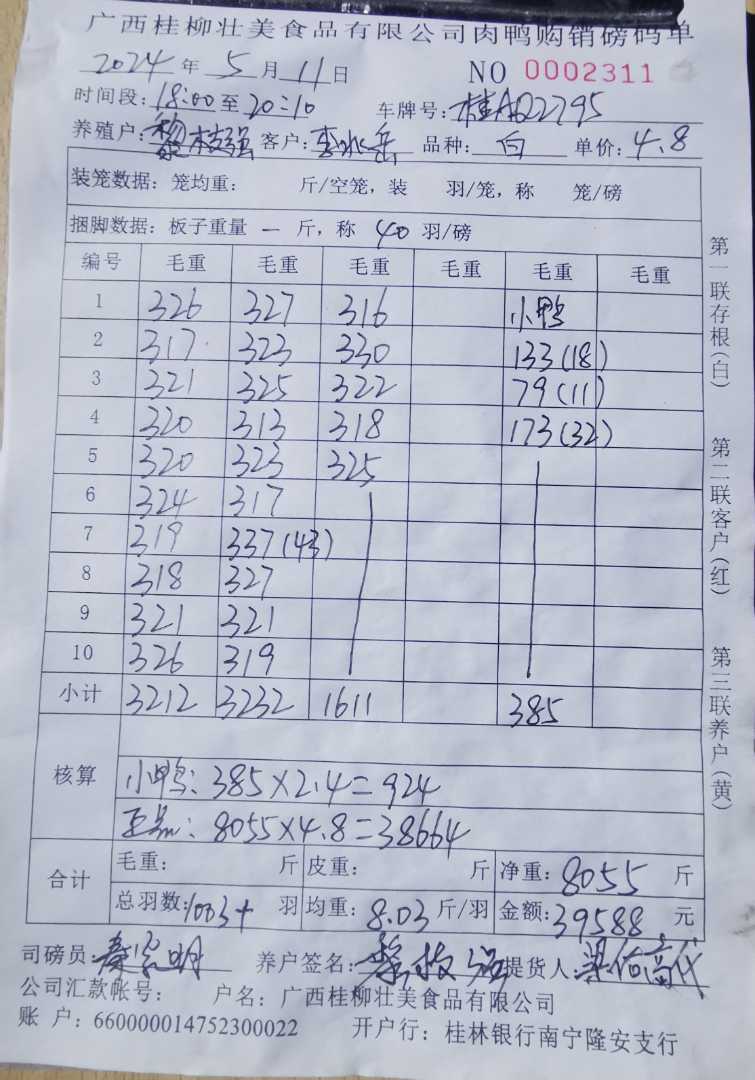 广西桂柳壮美食品有限公司肉鸭购销磅码单
2024年5月11日 NO 0002311
时间段:18:00至20:10 车牌号:桂AQ2795
养殖户:黎枝强 客户: 品种:白 单价:4.8
装笼数据:笼均重: 斤/空笼,装 羽/笼,称 笼/磅
捆脚数据:板子重量 一 斤,称 40 羽/磅
编号 毛重 毛重 毛重 毛重 毛重 毛重
1 326 327 316 小鸭
2 317 323 330 133(18)
3 321 325 322 79(11)
4 320 313 318 173(32)
5 320 323 325
6 324 317
7 319 337(43)
8 318 327
9 321 321
10 326 319
小计 3212 3232 1611 385
核算
小鸭:385×2.4=924
正品:8055×4.8=38664
合计
毛重: 斤 皮重: 斤 净重:8055斤
总羽数:1003+ 羽 均重:8.03斤/羽 金额:39588元
司磅员: 养户签名:黎枝强 提货人:
公司汇款帐号: 户名:广西桂柳壮美食品有限公司
账 户:660000014752300022 开户行:桂林银行南宁隆安支行
第一联存根(白)
第二联客户(红)
第三联养户(黄)